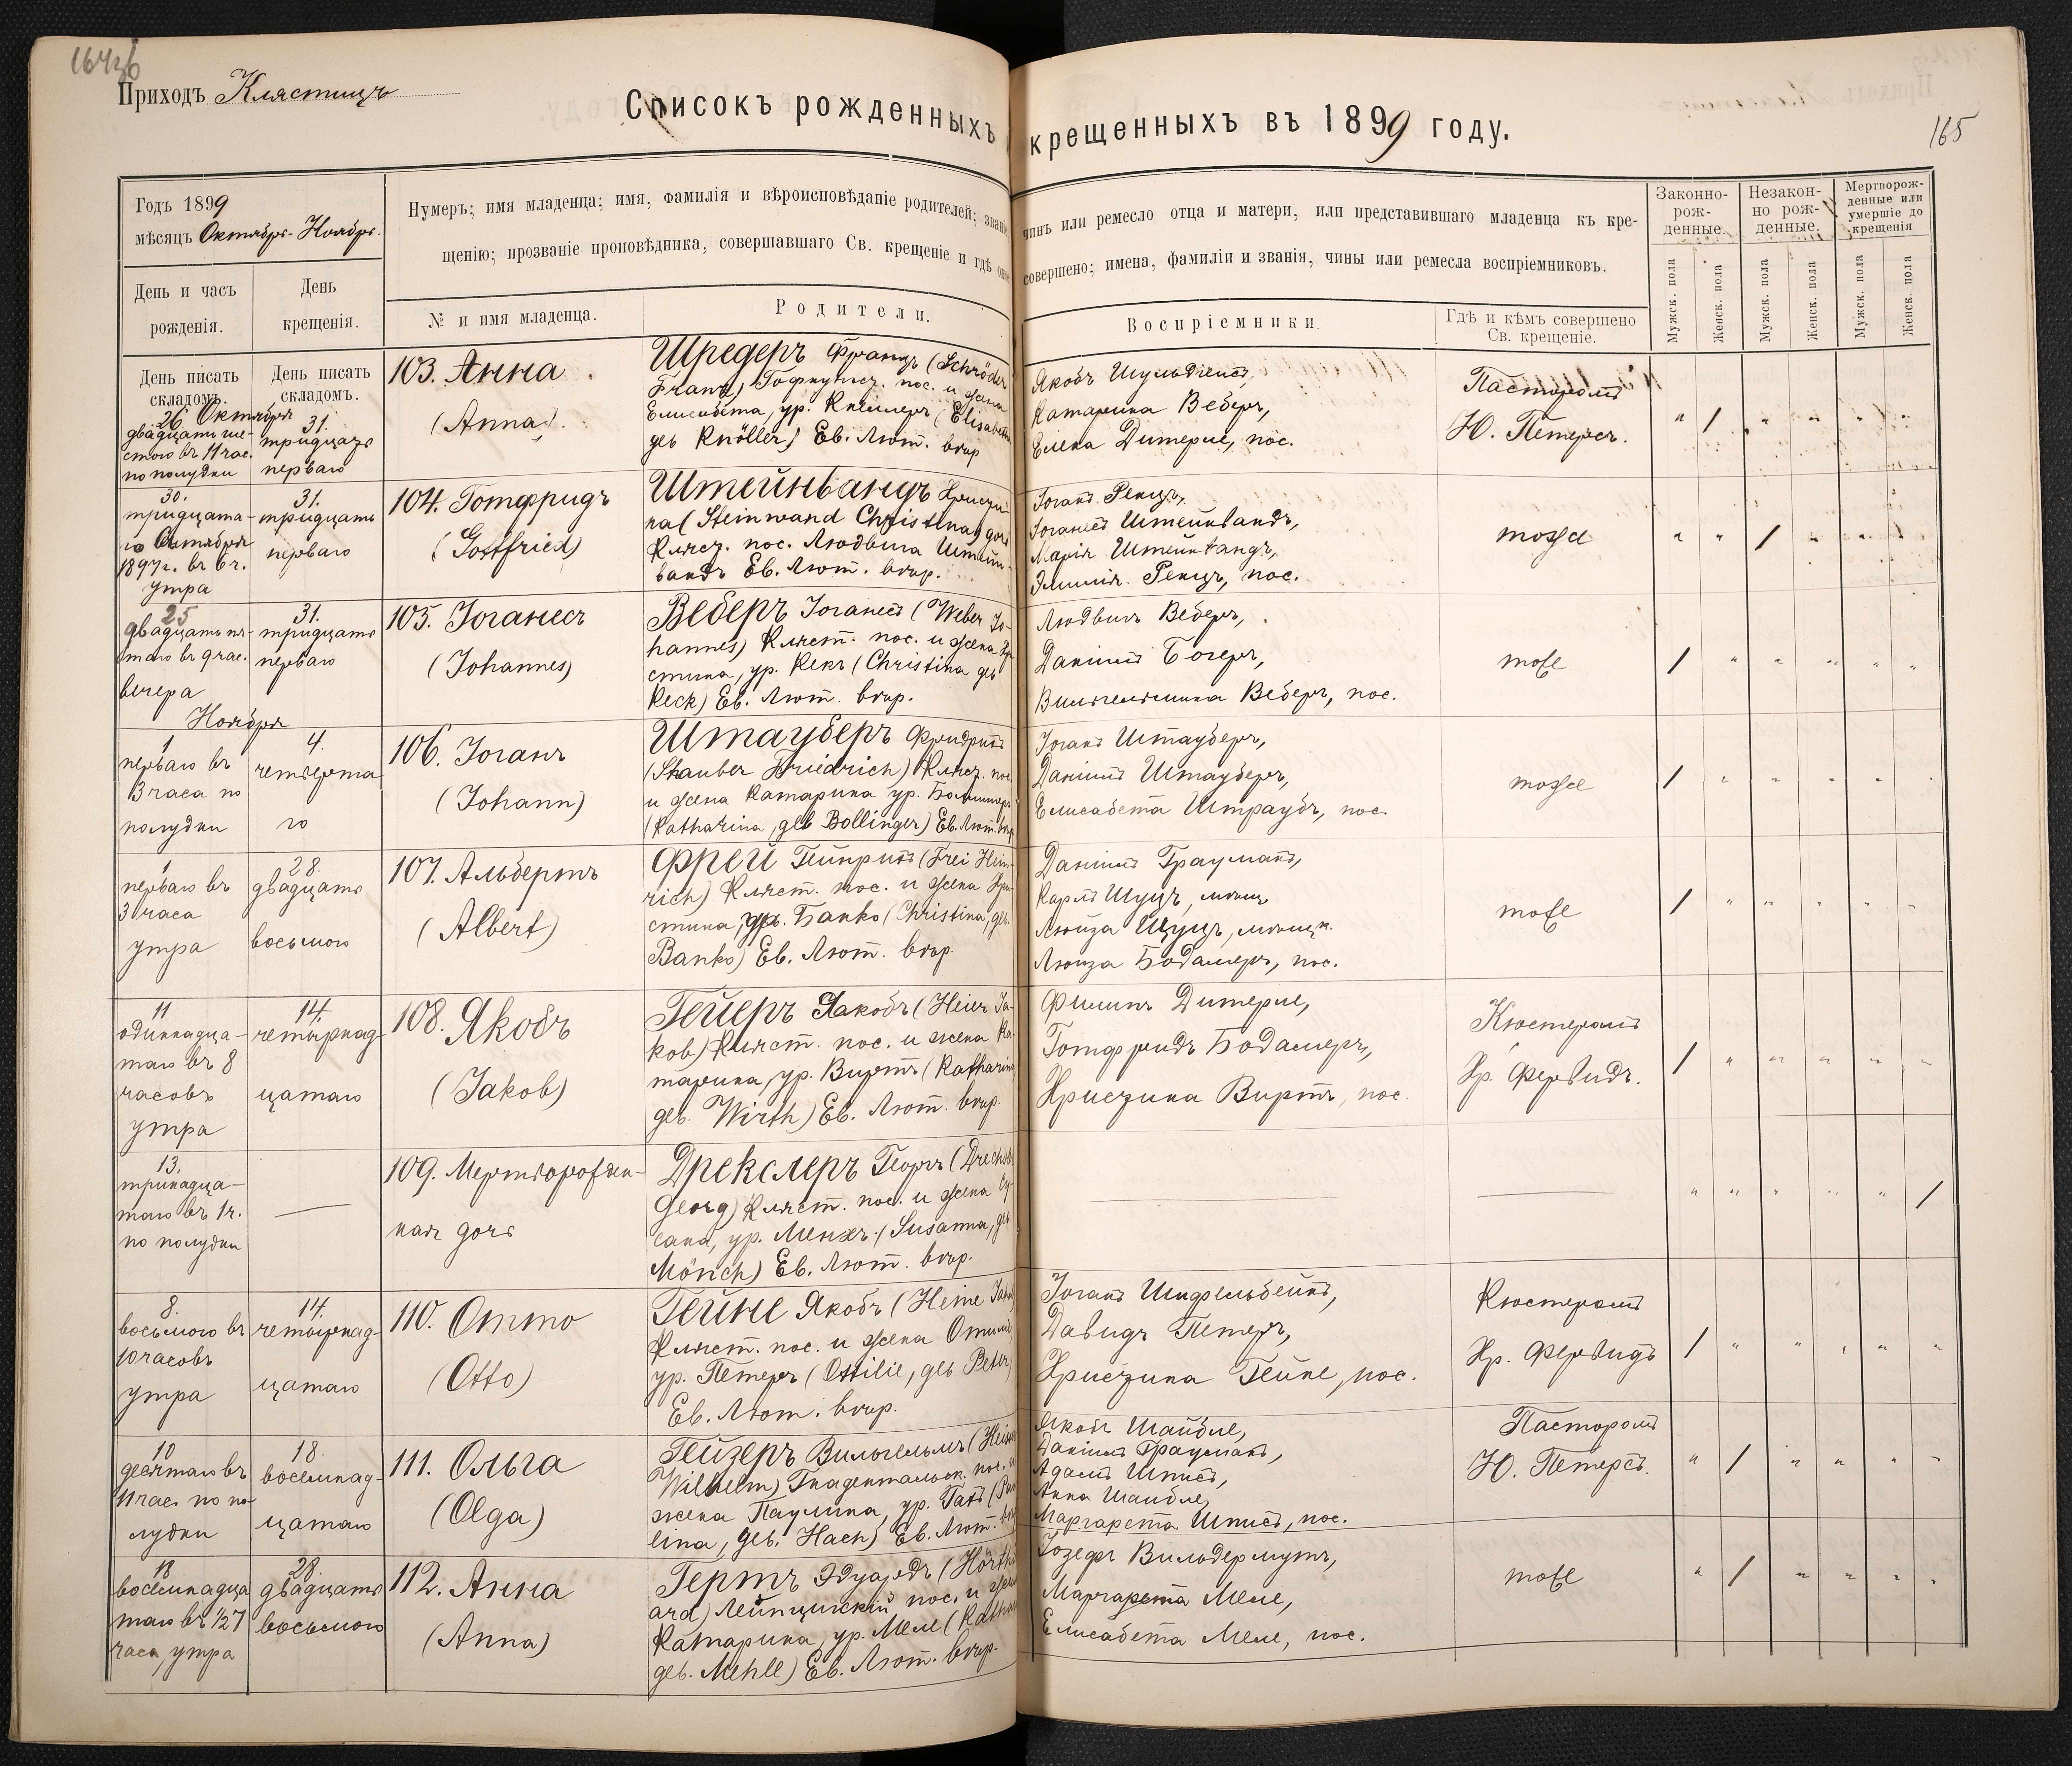 Приходъ Клястицъ
165
Списокъ рожденныхъ
крещенныхъ въ 1899 году.
Годъ 1899
мѣсяцъ Октябрь-Ноябрь.
День и часъ
рожденія.
День
крещенія.
Нумеръ; имя младенца; имя, фамилія и вѣроисповѣданіе родителей;
щенію; прозваніе проповѣдника, совершавшаго Св. крещеніе и гдѣ
чинъ или ремесло отца и матери, или представившаго младенца къ кре-
совершено; имена, фамиліи и званія, чины или ремесла воспріемниковъ.
№ и имя младенца.
Родители.
Воспріемники.
Гдѣ и кѣмъ совершено
Св. крещеніе.
Законно-
рож-
денные.
Незакон-
но рож-
денные.
Мертворож-
денные или
умершіе до
крещенія
Мужск. пола
Женск. пола
Мужск. пола
Женск. пола
Мужск. пола
Женск. пола
День писать
складомъ.
День писать
складомъ.
26 Октября
двадцать ше-
стого въ 11 час.
по полудни
31.
тридцать
перваго
103. Анна
(Anna)
Шредеръ Францъ (Schröder
Franz) пос. и жена
Елисабета, ур. (Elisabeth
geb Knöller) Ев. Лют. вѣр
Якобъ
Катарина Веберъ,
Елена Дитерле, пос.
Пасторомъ
Ю. Петерсъ.
30.
тридцата-
го Октября
189 г. въ 6 ч.
утра
31.
тридцать
перваго
104. Готфридъ
(Gottfried)
Штейнвандъ Христи-
на (Steinwand Christina)
Кляст. пос. Людвига Штейн-
вандъ Ев. Лют. вѣр.
Іоганъ Ренцъ,
Іоганесъ Штейнвандъ,
Марія Штейнвандъ,
Эмилія Ренцъ, пос.
тоже
25
двадцать пя-
таго въ 9 час.
вечера
31.
тридцать
перваго
105. Іоганесъ
(Johannes)
Веберъ Іоганесъ (Weber Jo-
hannes) Кляст. пос. и жена Хри-
стина, ур. Кекъ (Christina geb
Keck) Ев. Лют. вѣр.
Людвигъ Веберъ,
Даніилъ Богеръ,
Вильгельмина Веберъ, пос.
тоже
Ноября
1
перваго въ
3 часа по
полудни
4.
четверта
го
106. Іоганъ
(Johann)
Штауберъ Фридрихъ
(Stauber Friedrich) Кляст. пос.
и жена Катарина ур. Болингеръ
(Katharina, geb Bollinger) Ев. Лют. вѣр
Іоганъ Штауберъ,
Даніилъ Штауберъ,
Елисабета Штраубъ, пос.
тоже
1
перваго въ
3 часа
утра
28.
двадцать
восьмого
107. Альбертъ
(Albert)
Фрей Гейнрихъ (Frei Hein-
rich) Кляст. пос. и жена Хри-
стина, ур. Банко (Christina, geb.
Banko) Ев. Лют. вѣр.
Даніилъ Грауманъ,
Карлъ Шуцъ,
Люиза Шуцъ,
Люиза Бодамеръ, пос.
тоже
11
одиннадца-
таго въ 8
часовъ
утра
14.
четырнад-
цатаго
108. Якобъ
(Jakob)
Гейеръ Якобъ (Heier Ja-
kob) Кляст. пос. и жена Ка-
тарина, ур. Виртъ (Katharina
geb. Wirth) Ев. Лют. вѣр.
Филипъ Дитерле,
Готфридъ Бодамеръ,
Христина Виртъ, пос.
Кюстеромъ
Хр. Фервидъ.
13.
тринадца-
таго въ 1 ч.
по полудни
109. Мертворожден-
ная дочь
Дрекслеръ Георгъ (
Georg) Кляст. пос. и жена Су-
сана, ур. Менхъ (Susanna, geb
Mönch) Ев. Лют. вѣр.
8.
восьмого въ
10 часовъ
утра
14.
четырнад-
цатаго
110. Отто
(Otto)
Гейне Якобъ (Heine Jakob)
Кляст. пос. и жена Отилія
ур. Петеръ (Ottilie, geb Peter)
Ев. Лют. вѣр.
Іоганъ Шифельбейнъ,
Давидъ Петеръ,
Христина Гейне, пос.
Кюстеромъ
Хр. Фервидъ
10
десятаго въ
11 час. по по-
лудни
18.
восемнад-
цатаго
111. Ольга
(Olga)
Гейзеръ Вильгельмъ (
Wilhelm) Гнадентальск. пос. и
жена Паулина, ур. Гахъ (Pau
lina, geb. Hach) Ев. Лют. вѣр
Якобъ Шайбле,
Даніилъ Грауманъ,
Адамъ Шписъ,
Анна Шайбле,
Маргарета Шписъ, пос.
Пасторомъ
Ю. Петерсъ.
18
восемнадца
таго въ ½7
часа, утра
28.
двадцать
восьмого
112. Анна
(Anna)
Гертъ Эдуардъ (Hörth
ard) Лейпцигскій пос. и жена
Катарина, ур. Меле (Katha
geb. Mehle) Ев. Лют. вѣр.
Іозефъ Вильдермутъ,
Маргарета Меле,
Елисабета Меле, пос.
тоже